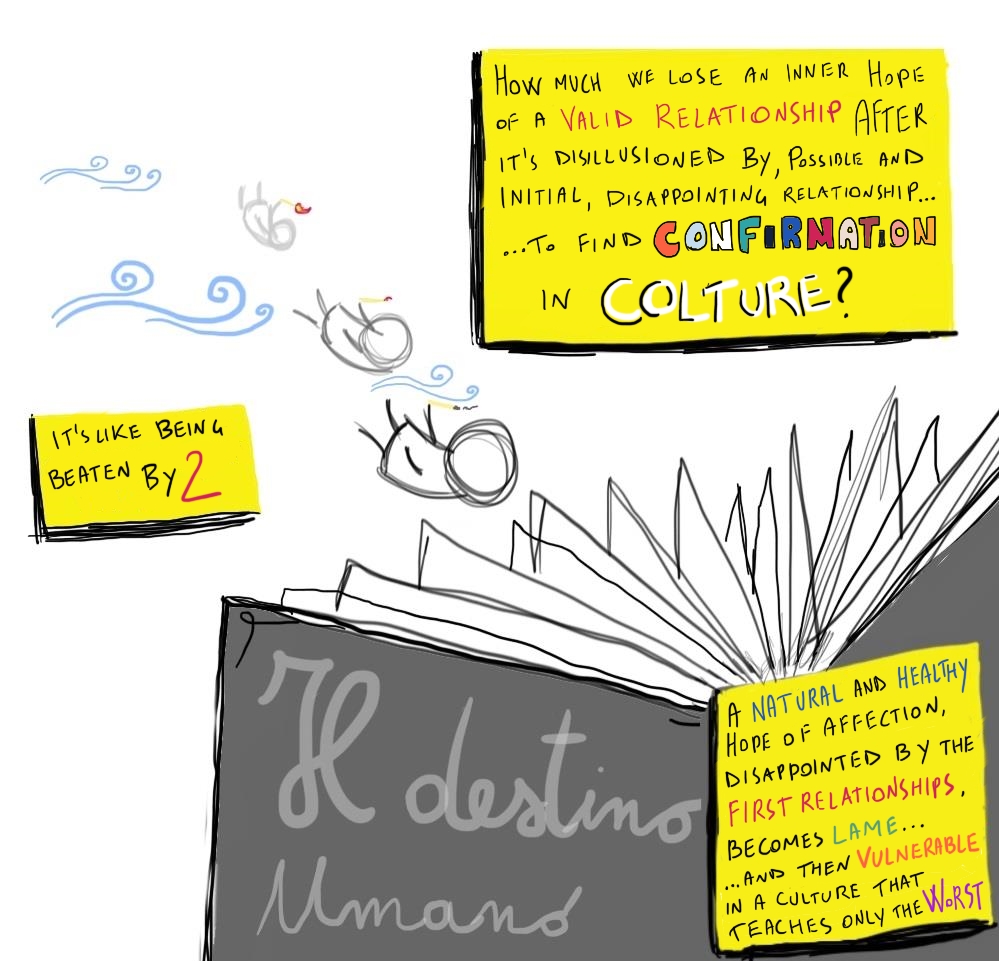 HOW MUCH WE LOSE AN INNER HOPE
OF A VALID RELATIONSHIP AFTER
IT'S DISILLUSIONED BY, POSSIBLE AND
INITIAL, DISAPPOINTING RELATIONSHIP...
...TO FIND CONFIRMATION
IN COLTURE?
IT'S LIKE BEING
BEATEN BY 2
Il destino
Umano
A NATURAL AND HEALTHY
HOPE OF AFFECTION,
DISAPPOINTED BY THE
FIRST RELATIONSHIPS,
BECOMES LAME...
...AND THEN VULNERABLE
IN A CULTURE THAT
TEACHES ONLY THE WORST